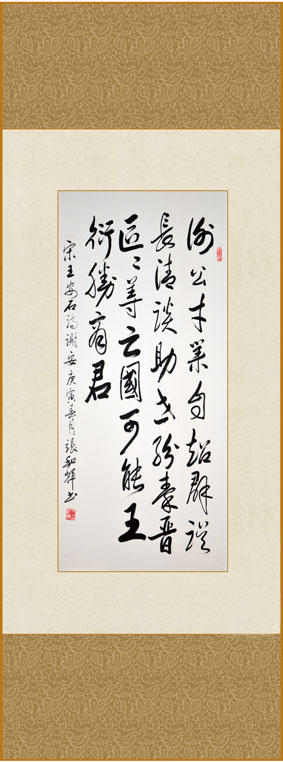 谢公才業自超群誤
長清談助世紛秦晋
區々等亡國可能王
衍勝商君
宋王安石詩謝安庚寅春月張和輝书